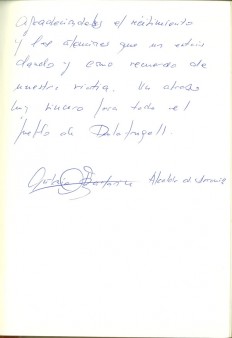 Agradeciendoles el recibimiento
y las atenciones que nos estais
dando y como recuerdo de
nuestra visita. Un abrazo
muy sincero para todo el
pueblo de Palafrugell.
Antonio Alcalde de